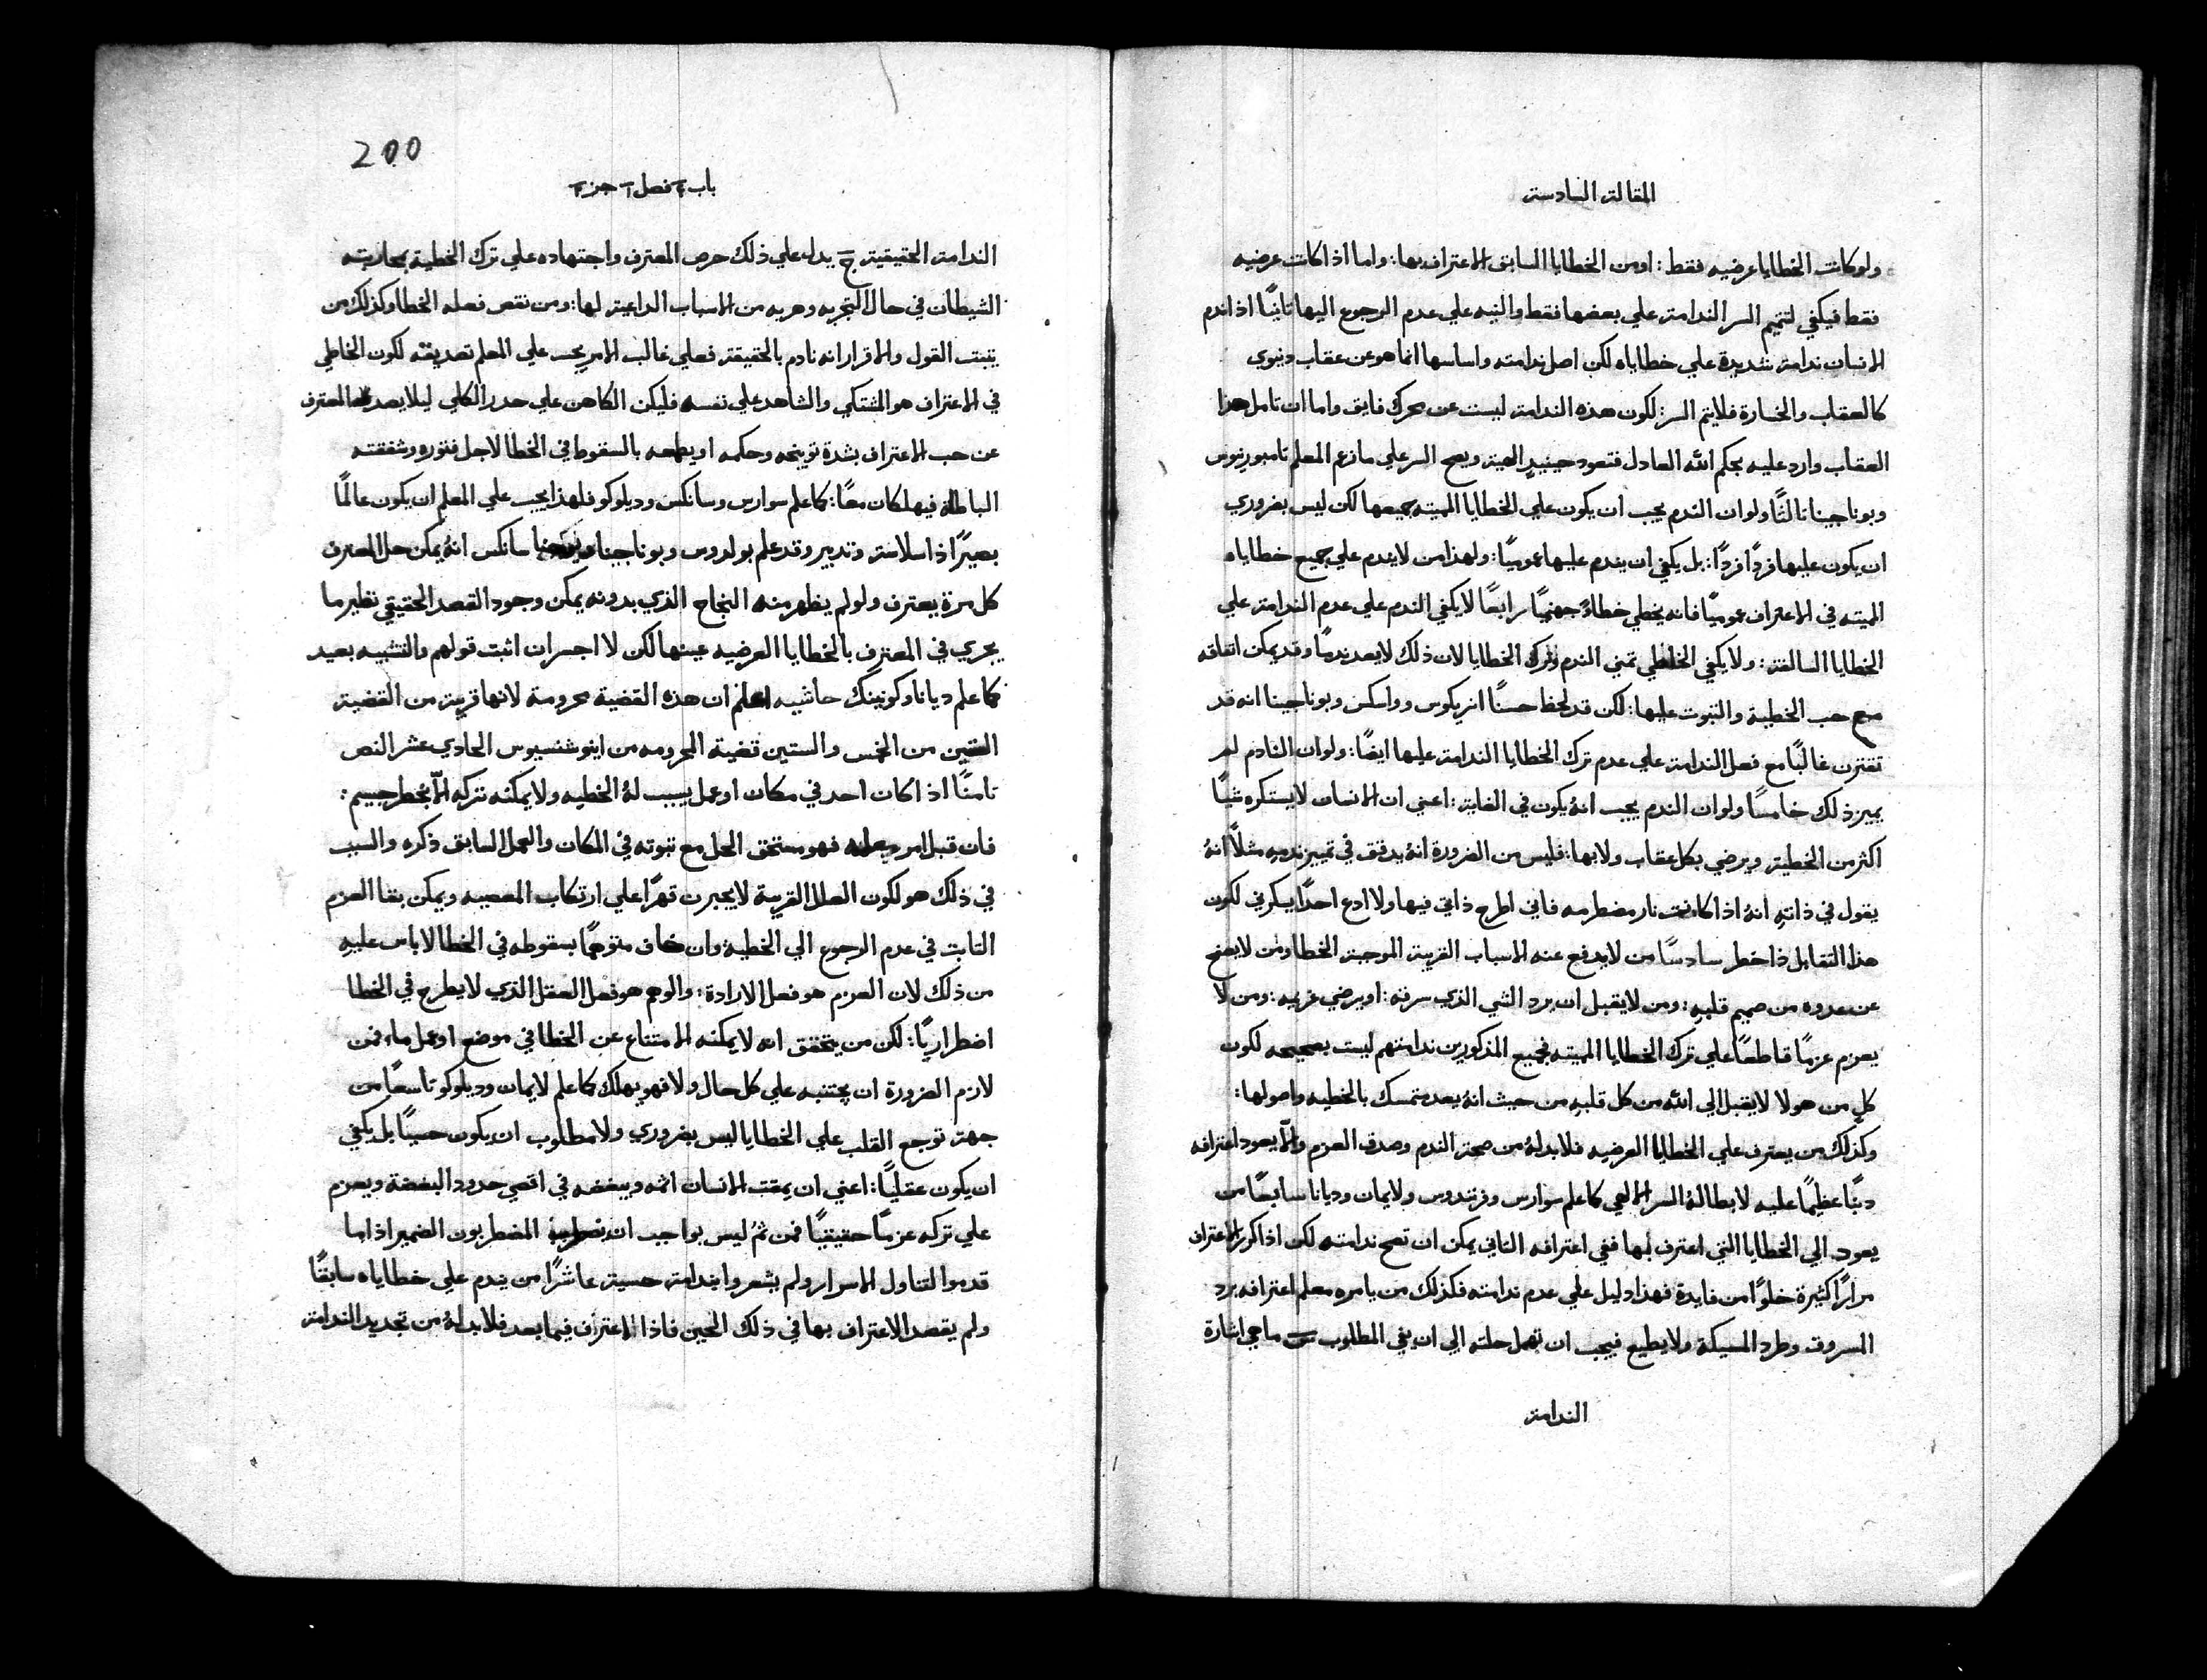 المقالة السادسة
ولو كانت الخطايا عرضيه فقط: او من الخطايا السابق الاعتراف بها: واما اذا كانت عرضيه
فقط فيكفي لتتميم السر الندامة علي بعضها فقط والنيه علي عدم الرجوع اليها ثانيًا اذا ندم
الانسان ندامة شديدة علي خطاياه لكن اصل ندامته واساسها انما هو عن عقاب دنيوي
كالعقاب والخسارة فلا يتم السر: لكون هذه الندامة ليست عن محرك فايق واما ان تامل هذا
العقاب وارد عليه بحكم الله العادل فتعود حينيدٍ الهية ويصح السر علي ما زعم المعلم تامبورنيوس
وبوناجينا ثالثًا ولو ان الندم يجب ان يكون علي الخطايا المميته جميعها لكن ليس بضروري
ان يكون عليها فردًا فردًا: بل يكفي ان يندم عليها عموميًا: ولهذا من لا يندم علي جميع خطاياه
المميته في الاعتراف عموميًا فانه يخطي خطاءً جهنميًا رابعًا لا يكفي الندم علي عدم الندامة علي
الخطايا السالفة: ولا يكفي الخاطي تمني الندم وترك الخطايا لان ذلك لا يعد ندمًا وقد يمكن اتفاقه
مع حب الخطية والثبوت عليها: لكن قد لحظ حسنًا انريكوس وواسكس وبوناجينا انه قد
تقترن غالبًا مع فعل الندامة علي عدم ترك الخطايا الندامة عليها ايضًا: ولو ان النادم لم
يميز ذلك خامسًا ولو ان الندم يجب انهُ يكون في الغاية: اعني ان الانسان لا يستكره شيًا
اكثر من الخطية ويرضي بكل عقاب ولا بها: فليس من الضرورة انهُ يدقق في تمييز ندمهِ مثلًا انهُ
يقول في ذاتهِ انهُ اذا كانت نار مضطرمه فاني اطرح ذاتي فيها ولا ادع احدًا يسكرني لكون
هذا التقابل ذا خطر سادسًا من لا يدفع عنه الاسباب القريبة الموجبة الخطا ومن لا يصفح
عن عدوه من صميم قلبهِ: ومن لا يقبل ان يرد الشي الذي سرقه: او يرضي غريمه: ومن لا
يعزم عزمًا قاطعًا علي ترك الخطايا المميته فجميع المذكورين ندامتهم ليست بصحيحه لكون
كل من هولا لا يقبل الي الله من كل قلبه من حيث انهُ يعد متمسك بالخطيه واصولها:
وكذلك من يعترف علي الخطايا العرضيه فلا بد لهُ من صحة الندم وصدق العزم والّا يعود اعترافه
دينًا عظيمًا عليه لابطالهُ السر الالهي كما علم سوارس وفرنندوس ولايمان وديانا سابعًا من
يعود الي الخطايا التي اعترف بها ففي اعترافه الثاني يمكن ان تصح ندامته لكن اذا كرر الاعتراف
مرارًا كثيرة خلوًا من فايدة فهذا دليل علي عدم ندامته فكذلك من يامره معلم اعترافه برد
المسروق وطرد المسيكة ولا يطيع فيجب ان تهمل حلته الي ان يفي المطلوب س ما هي اشارة
الندامة
200
باب ٢ فصل ١ جز ٢
الندامة الحقيقية ج يدل علي ذلك حرص المعترف واجتهاده علي ترك الخطية بمحاربته
الشيطان في حال التجربه وهربه من الاسباب الداعية لها: ومن نقص فعله الخطا وكذلك من
يثبت القول والاقرار انه نادم بالحقيقة فعلي غالب الامر يجب علي المعلم تصديقه لكون الخاطي
في الاعتراف هو المشتكي والشاهد علي نفسه فليكن الكاهن علي حدر الكلي ليلا يصد المعترف
عن حب الاعتراف بشدة توبيخه وحكمه او يطمعه بالسقوط في الخطا لاجل فتوره وشفقته
الباطلة فيهلكان معًا: كما علم سوارس وسانكس وديلوكو فلهذا يجب علي المعلم ان يكون عالمًا
بصيرًا ذا سلامة وتدبير وقد علم بولدوس وبوناجينا سانكس انهُ يمكن حل المعترف
كل مرة يعترف ولو لم يظهر منه النجاح الذي بدونه يمكن وجود القصد الحقيقي نظير ما
يجري في المعترف بالخطايا العرضيه عينها لكن لا اجسر ان اثبت قولهم والتشبيه بعيد
كما علم ديانا وكونينك حاشيه اعلم ان هذه القضية محرومة لانها قريبة من القضية
الستين من الخمس والستين قضية المحرومه من اينوشنسيوس الحادي عشر النص
ثامنًا اذا كان احد في مكان او عمل يسبب لهُ الخطيه ولا يمكنه تركه الّا بخطر جسيم:
فان قبل امر معلمه فهو مستحق الحل مع ثبوته في المكان والعمل السابق ذكره والسبب
في ذلك هو لكون العلل القريبة لا يجبرن قهرًا علي ارتكاب المعصيه ويمكن بقا العزم
الثابت في عدم الرجوع الي الخطية وان خاف متوهمًا بسقوطه في الخطا لا باس عليهِ
من ذلك لان العزم هو فعل الارادة: والوهم هو فعل العقل الذي لا يطرح في الخطا
اضطراريًا: لكن من يتحقق انه لا يمكنه الامتناع عن الخطا في موضع او عمل ما، فمن
لازم الضرورة ان يجتنبه علي كل حال ولا فهو يهلك كما علم لايمان وديلوكو تاسعًا من
جهة توجع القلب علي الخطايا ليس بضروري ولا مطلوب ان يكون حسيًا بل يكفي
ان يكون عقليًا: اعني ان يمقت الانسان اثمه ويبغضه في اقصي حدود البغضة ويعزم
علي تركه عزمًا حقيقيًا فمن ثمُ ليس بواجب ان المضطربون الضمير اذا ما
قدموا لتناول الاسرار ولم يشعروا بندامة حسية عاشرًا من يندم علي خطاياه سابقًا
ولم يقصد الاعتراف بها في ذلك الحين فاذا الاعتراف فيما بعد فلا بد لهُ من تجديد الندامة